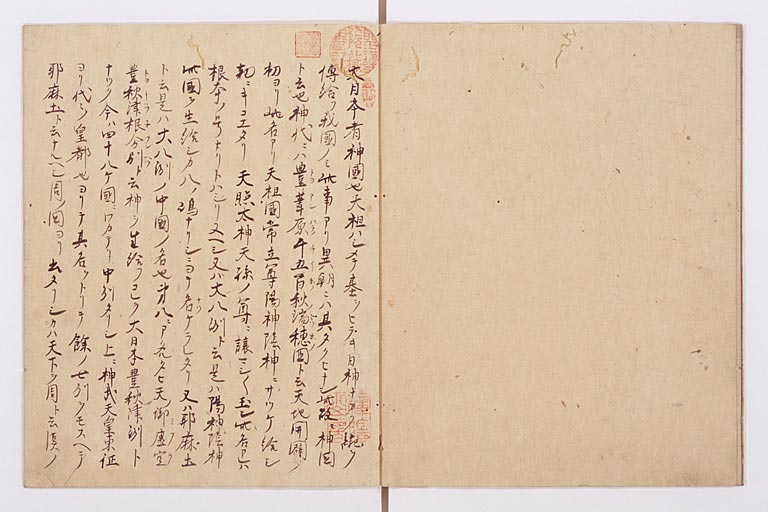 大日本者神國也天祖ハシメテ基ヲヒラキ日神ナカク統ヲ
傳給フ我國ノミ此事アリ異朝ニハ其タクヒナシ此故ニ神國
ト云也神代ニハ豊葦原千五百秋瑞穂國ト云天地開闢ノ
初ヨリ此名アリ天祖國常立尊陽神陰神ニサツケ給シ
勅ニキコエタリ天照太神天孫ノ尊ニ譲マシ〱シモ此名アレハ
根本ノ号ナリトハシリヌヘシ又ハ大八洲ト云是ハ陽神陰神
此國ヲ生給シカ八ノ嶋ナリシニヨテ名ケラレタリ又ハ耶麻土
ト云是ハ大八洲ノ中國ノ名也第八ニアタルタヒ天御虚空
豊秋津根別ト云神ヲ生給フコレヲ大日本豊秋津洲ト
ナツク今ハ四十八ケ國ニワカテリ中洲タリシ上ニ神武天皇東征
ヨリ代々ノ皇都也ヨリテ其名ヲトリテ餘ノ七洲ヲモスヘテ
耶麻土ト云ナルヘシ周ノ國ヨリ出タリシカハ天下ヲ周ト云漢ノ